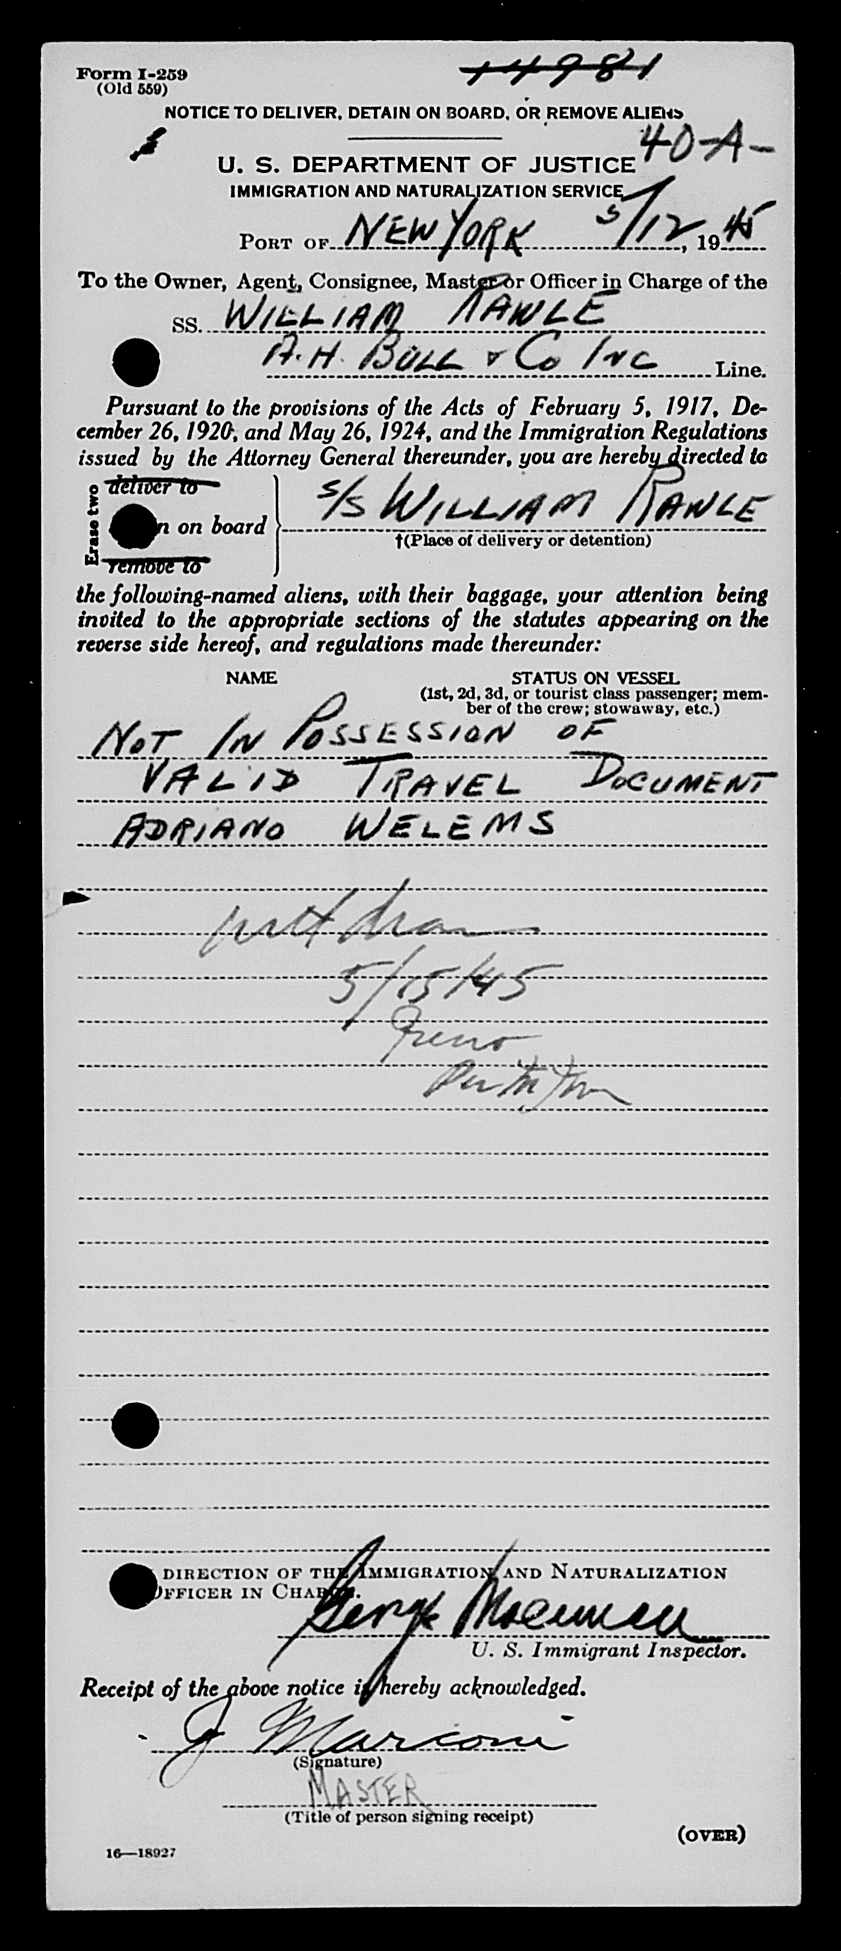 Form I-259
(Old 559)
14981
NOTICE TO DELIVER, DETAIN ON BOARD, OR REMOVE ALIENS
40-A-
U. S. DEPARTMENT OF JUSTICE
IMMIGRATION AND NATURALIZATION SERVICE
PORT OF NEW YORK 5/12, 1945
To the Owner, Agent, Consignee, Master or Officer in Charge of the
SS. WILLIAM RAWLE
A. H. BULL & CO INC Line.
Pursuant to the provisions of the Acts of February 5, 1917, De-
cember 26, 1920, and May 26, 1924, and the Immigration Regulations
issued by the Attorney General thereunder, you are hereby directed to
Erase two
deliver to
n on board
remove to
S/S WILLIAM RAWLE
†(Place of delivery or detention)
the following-named aliens, with their baggage, your attention being
invited to the appropriate sections of the statutes appearing on the
reverse side hereof, and regulations made thereunder:
NAME STATUS ON VESSEL
(1st, 2d, 3d, or tourist class passenger; mem-
ber of the crew; stowaway, etc.)
NOT IN POSSESSION OF
VALID TRAVEL DOCUMENT
ADRIANO WELEMS
5/15/45
DIRECTION OF THE IMMIGRATION AND NATURALIZATION
OFFICER IN CHARGE.
George
U. S. Immigrant Inspector.
Receipt of the above notice is hereby acknowledged.
J Marconi
(Signature)
MASTER
(Title of person signing receipt)
(OVER)
16—18927